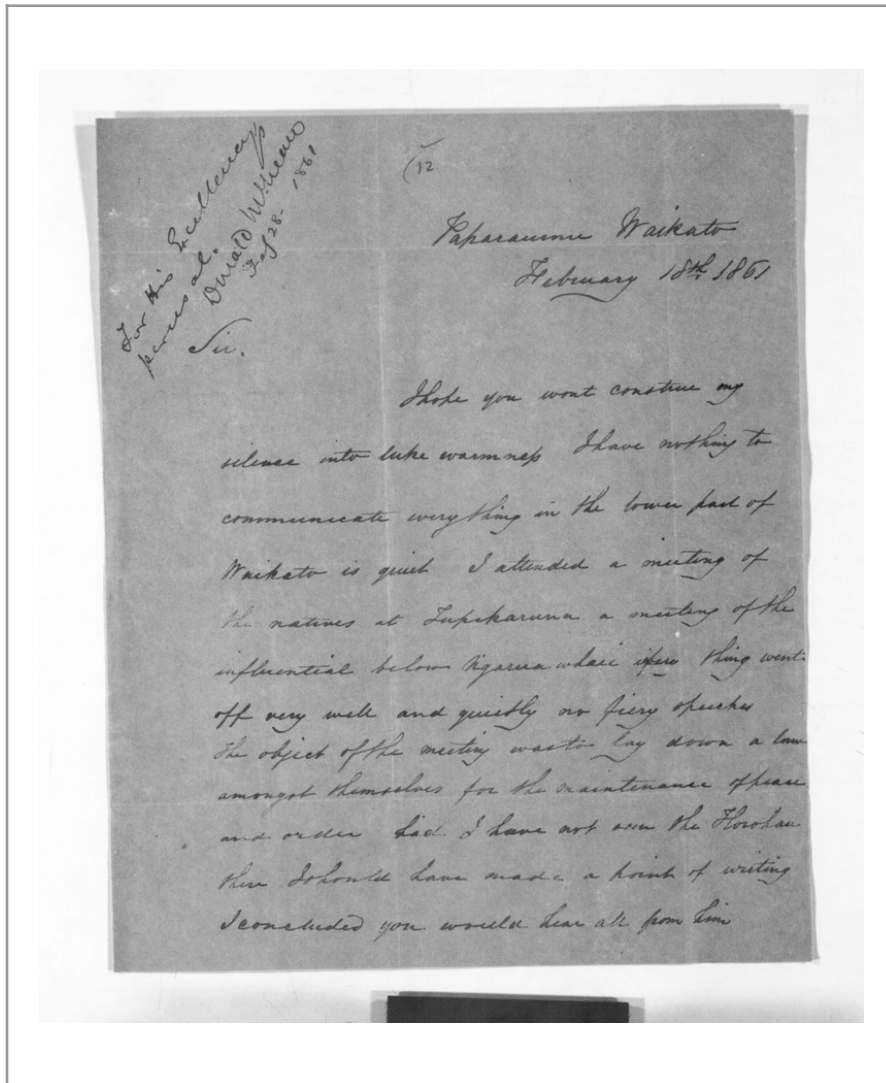 For His Excellency's
perusal.
Donald McLean
Feby 28- 1861
12
Waikato
February 18th 1861
Sir.
I hope you wont construe my
silence into luke warmness I have nothing to
communicate every thing in the lower part of
Waikato is quiet I attended a meeting of
the natives at a meeting of the
influential below thing went
off very well and quietly no fiery speeches
the object of the meeting was to lay down a law
amongst themselves for the maintenance of peace
and order had I have not seen the
there I should have made a point of writing
I concluded you would hear all from him